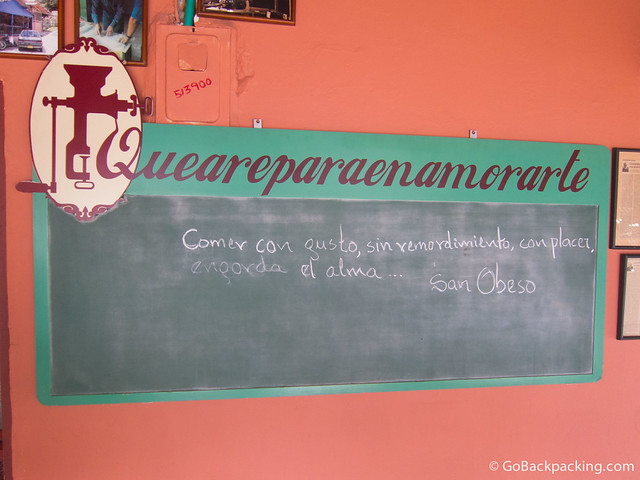 513900
Queareparaenamorarte
Comer con gusto, sin remordimiento, con placer,
engorda el alma...
San Obeso
© GoBackpacking.com